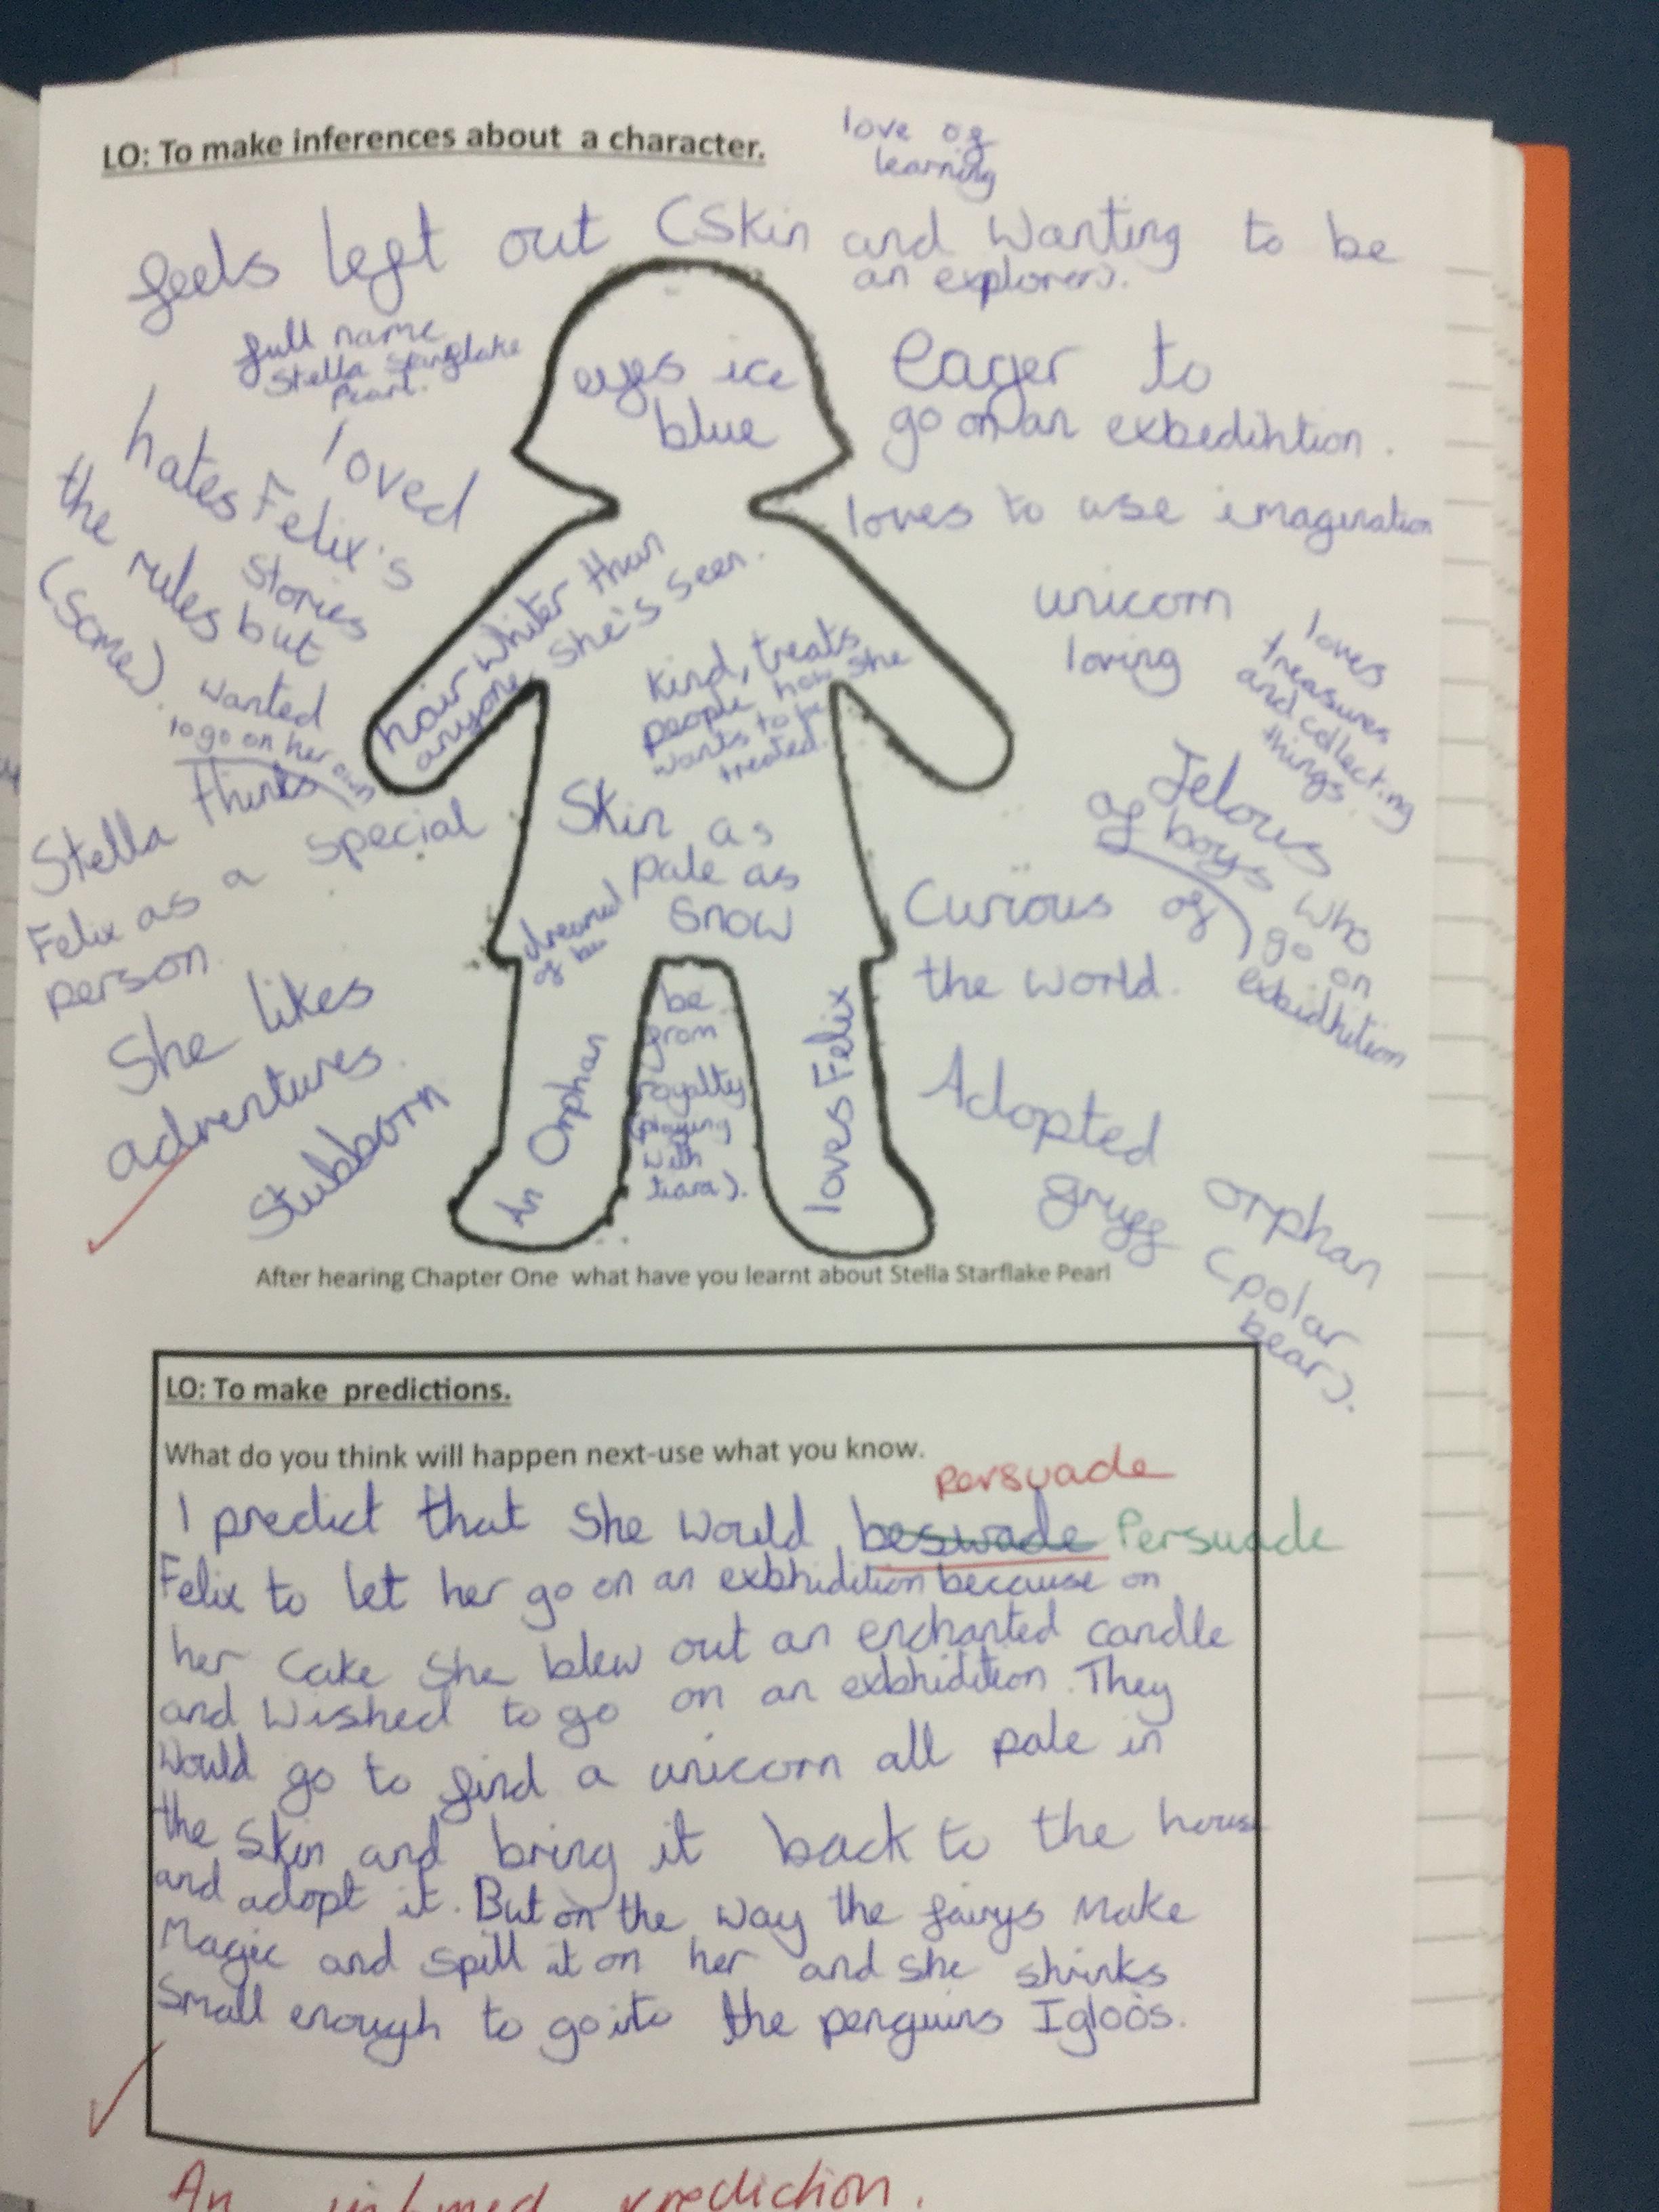 LO: To make inferences about a character.
love of
learning
feels left out (Skin and Wanting to be
an explorer).
full name
Stella
Pearl.
eyes ice
blue
Eager to
go on an exbedihtion.
loved
Felix's
stories
hates
the rules but
(some).
loves to use imagination
hair whiter than
anyone she's seen.
Kind, treats
people how she
wants to be
treated.
unicorn
loving
loves
treasures
and collecting
things.
wanted
to go on her own
Stella thinks
Felix as a special
person.
Skin as
pale as
Snow
Jelous
of boys who
go on
exbidhition
Curious of
the world.
dreamed
of be
be
from
royalty
(playing
with
tiara).
She likes
adventures.
Stubborn
An Orphan
loves Felix
Adopted
gruff orphan
(polar
bear).
After hearing Chapter One what have you learnt about Stella Starflake Pearl
LO: To make predictions.
What do you think will happen next-use what you know.
Persuade
I predict that She would beswade Persuade
Felix to let her go on an exbhidition because on
her Cake She blew out an enchanted candle
and Wished to go on an exbhidition. They
Would go to find a unicorn all pale in
the Skin and bring it back to the house
and adopt it. But on the way the fairys Make
Magic and Spill it on her and she shrinks
Small enough to go ito the penguins Igloos.
An informed prediction.